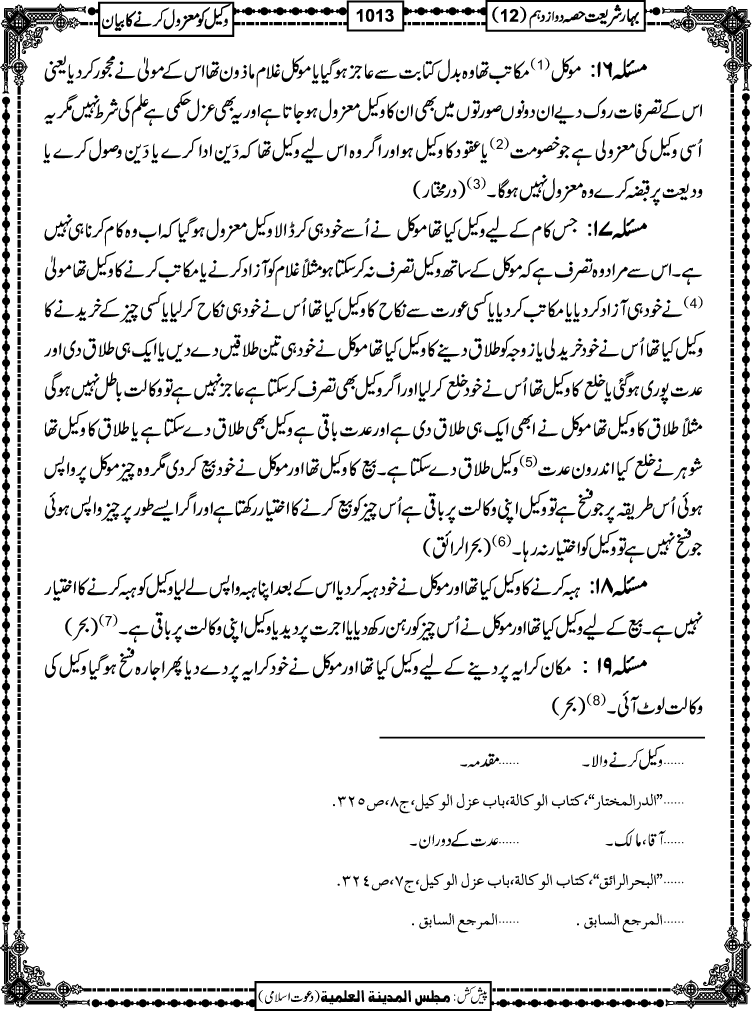 بہارِ شریعت حصہ دوازدہم (12)
1013
وکیل کو معزول کرنے کا بیان
مسئلہ ۱۶: موکل (1) مکاتب تھا وہ بدل کتابت سے عاجز ہوگیا یا موکل غلام ماذون تھا اس کے مولیٰ نے مجور کر دیا یعنی
اس کے تصرفات روک دیے ان دونوں صورتوں میں بھی ان کا وکیل معزول ہو جاتا ہے اور یہ بھی عزل حکمی ہے علم کی شرط نہیں مگر یہ
اُسی وکیل کی معزولی ہے جو خصومت (2) یا عقود کا وکیل ہو اور اگر وہ اس لیے وکیل تھا کہ دَین ادا کرے یا دَین وصول کرے یا
ودیعت پر قبضہ کرے وہ معزول نہیں ہوگا۔ (3) (درمختار)
مسئلہ ۱۷: جس کام کے لیے وکیل کیا تھا موکل نے اُسے خود ہی کر ڈالا وکیل معزول ہوگیا کہ اب وہ کام کرنا ہی نہیں
ہے۔ اس سے مراد وہ تصرف ہے کہ موکل کے ساتھ وکیل تصرف نہ کر سکتا ہو مثلاً غلام کو آزاد کرنے یا مکاتب کرنے کا وکیل تھا مولیٰ
(4) نے خود ہی آزاد کر دیا یا مکاتب کر دیا یا کسی عورت سے نکاح کا وکیل کیا تھا اُس نے خود ہی نکاح کر لیا یا کسی چیز کے خریدنے کا
وکیل کیا تھا اُس نے خود خرید لی یا زوجہ کو طلاق دینے کا وکیل کیا تھا موکل نے خود ہی تین طلاقیں دے دیں یا ایک ہی طلاق دی اور
عدت پوری ہوگئی یا خلع کا وکیل تھا اُس نے خود خلع کر لیا اور اگر وکیل بھی تصرف کر سکتا ہے عاجز نہیں ہے تو وکالت باطل نہیں ہوگی
مثلاً طلاق کا وکیل تھا موکل نے ابھی ایک ہی طلاق دی ہے اور عدت باقی ہے وکیل بھی طلاق دے سکتا ہے یا طلاق کا وکیل تھا
شوہر نے خلع کیا اندرون عدت (5) وکیل طلاق دے سکتا ہے۔ بیع کا وکیل تھا اور موکل نے خود بیع کر دی مگر وہ چیز موکل پر واپس
ہوئی اُس طریقہ پر جو فسخ ہے تو وکیل اپنی وکالت پر باقی ہے اُس چیز کو بیع کرنے کا اختیار رکھتا ہے اور اگر ایسے طور پر چیز واپس ہوئی
جو فسخ نہیں ہے تو وکیل کو اختیار نہ رہا۔ (6) (بحرالرائق)
مسئلہ ۱۸: ہبہ کرنے کا وکیل کیا تھا اور موکل نے خود ہبہ کر دیا اس کے بعد اپنا ہبہ واپس لے لیا وکیل کو ہبہ کرنے کا اختیار
نہیں ہے۔ بیع کے لیے وکیل کیا تھا اور موکل نے اُس چیز کو رہن رکھ دیا یا اجرت پر دیدیا وکیل اپنی وکالت پر باقی ہے۔ (7) (بحر)
مسئلہ ۱۹ : مکان کرایہ پر دینے کے لیے وکیل کیا تھا اور موکل نے خود کرایہ پر دے دیا پھر اجارہ فسخ ہوگیا وکیل کی
وکالت لوٹ آئی۔ (8) (بحر)
......وکیل کرنے والا۔ ......مقدمہ۔
......”الدرالمختار“،کتاب الوکالة،باب عزل الوکیل،ج۸،ص۳۲۵.
......آقا، مالک۔ ......عدت کے دوران۔
......”البحرالرائق“،کتاب الوکالة،باب عزل الوکیل،ج۷،ص۳۲۴.
......المرجع السابق . ......المرجع السابق .
پیش کش: مجلس المدینة العلمیة (دعوت اسلامی)